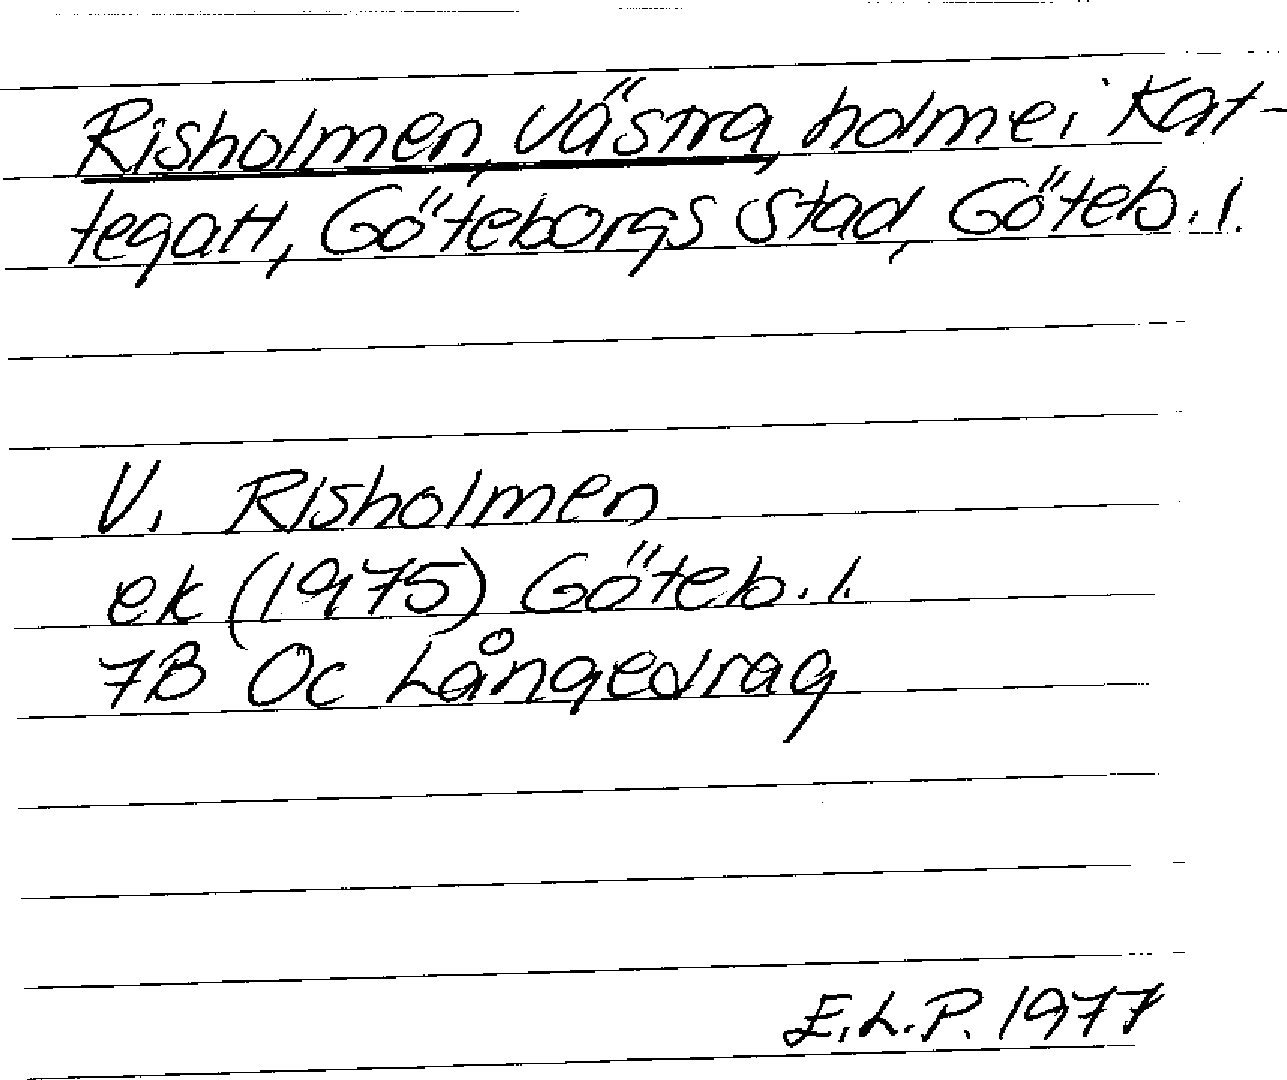 Risholmen, Västra, holme i Kat-
tegatt, Göteborgs stad, Göteb. l.
V. Risholmen
ek (1975) Göteb. l.
7B Oc Långedrag
E.L.P. 1977